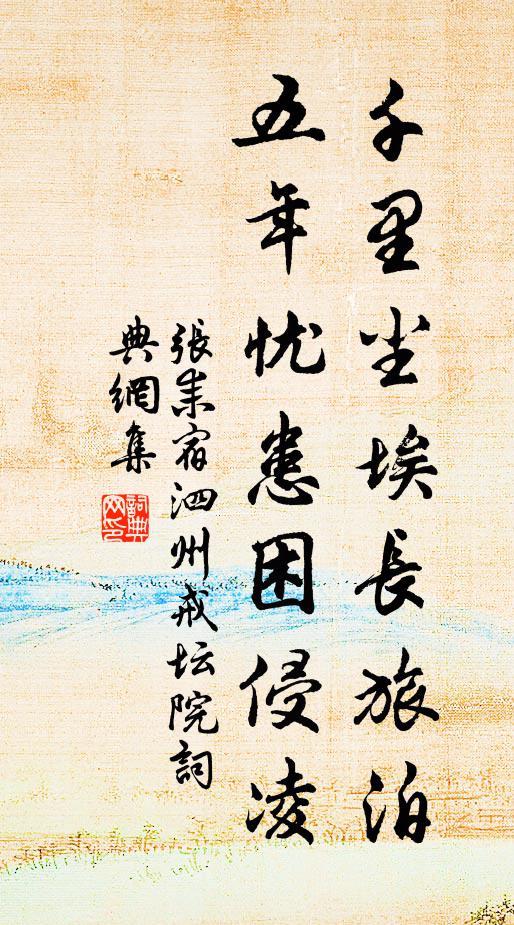 千里尘埃長旅泊
五年忧患困侵凌
張耒宿泗州戒坛院詞
典網集
詞典
网印